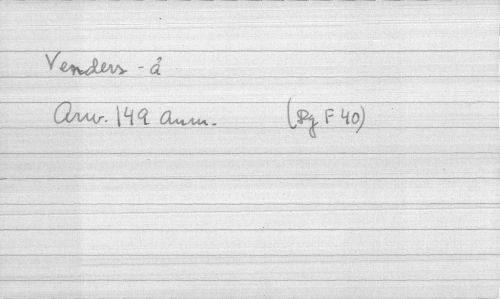 Venders-å
Arw. 149 anm. (Sg F 40)